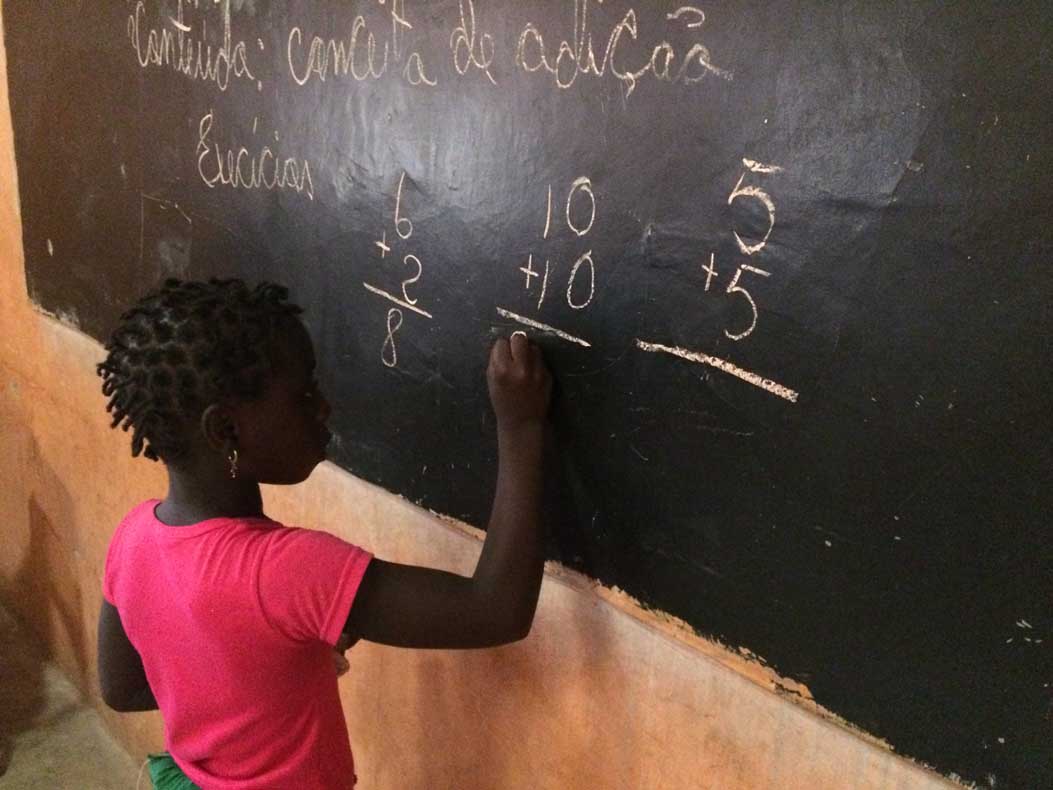 Conteúdo: conceito de adição
Execícios
6
+2
8
10
+10
0
5
+5